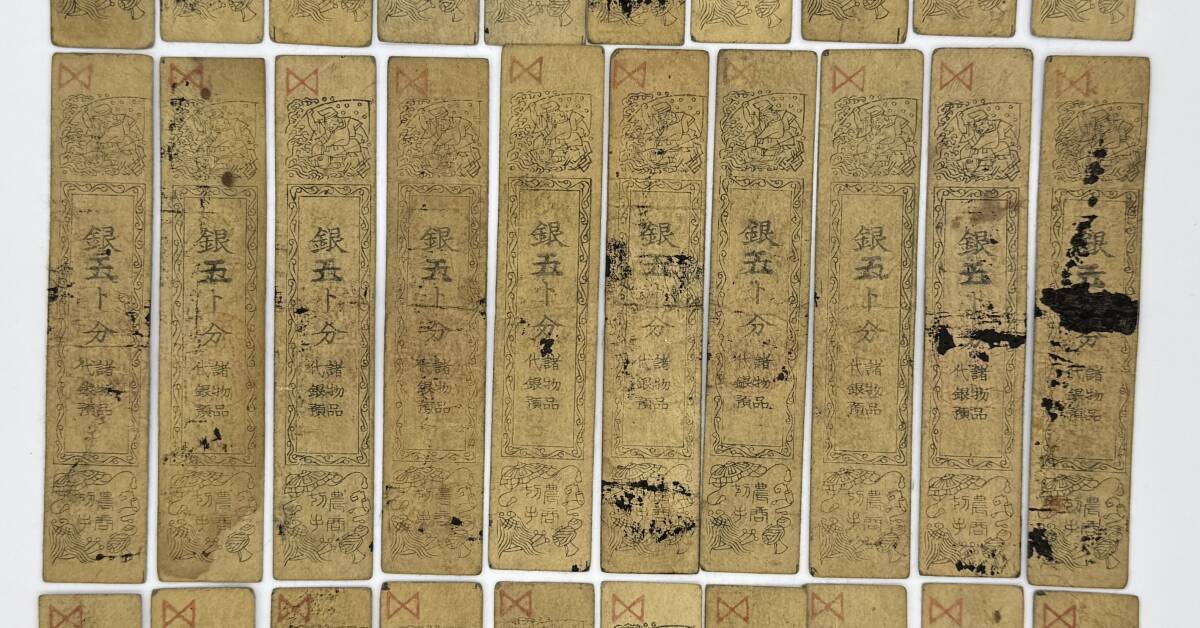 銀五卜分
諸物品
代銀預
農商
切手
銀五卜分
諸物品
代銀預
農商
切手
銀五卜分
諸物品
代銀預
農商
切手
銀五卜分
諸物品
代銀預
農商
切手
銀五卜分
諸物品
代銀預
農商
切手
銀五卜分
諸物品
代銀預
銀五卜分
諸物品
代銀預
農商
切手
銀五卜分
諸物品
代銀預
農商
切手
銀五卜
諸物品
代銀預
農商
切手
銀五
諸物品
代銀預
農商
切手